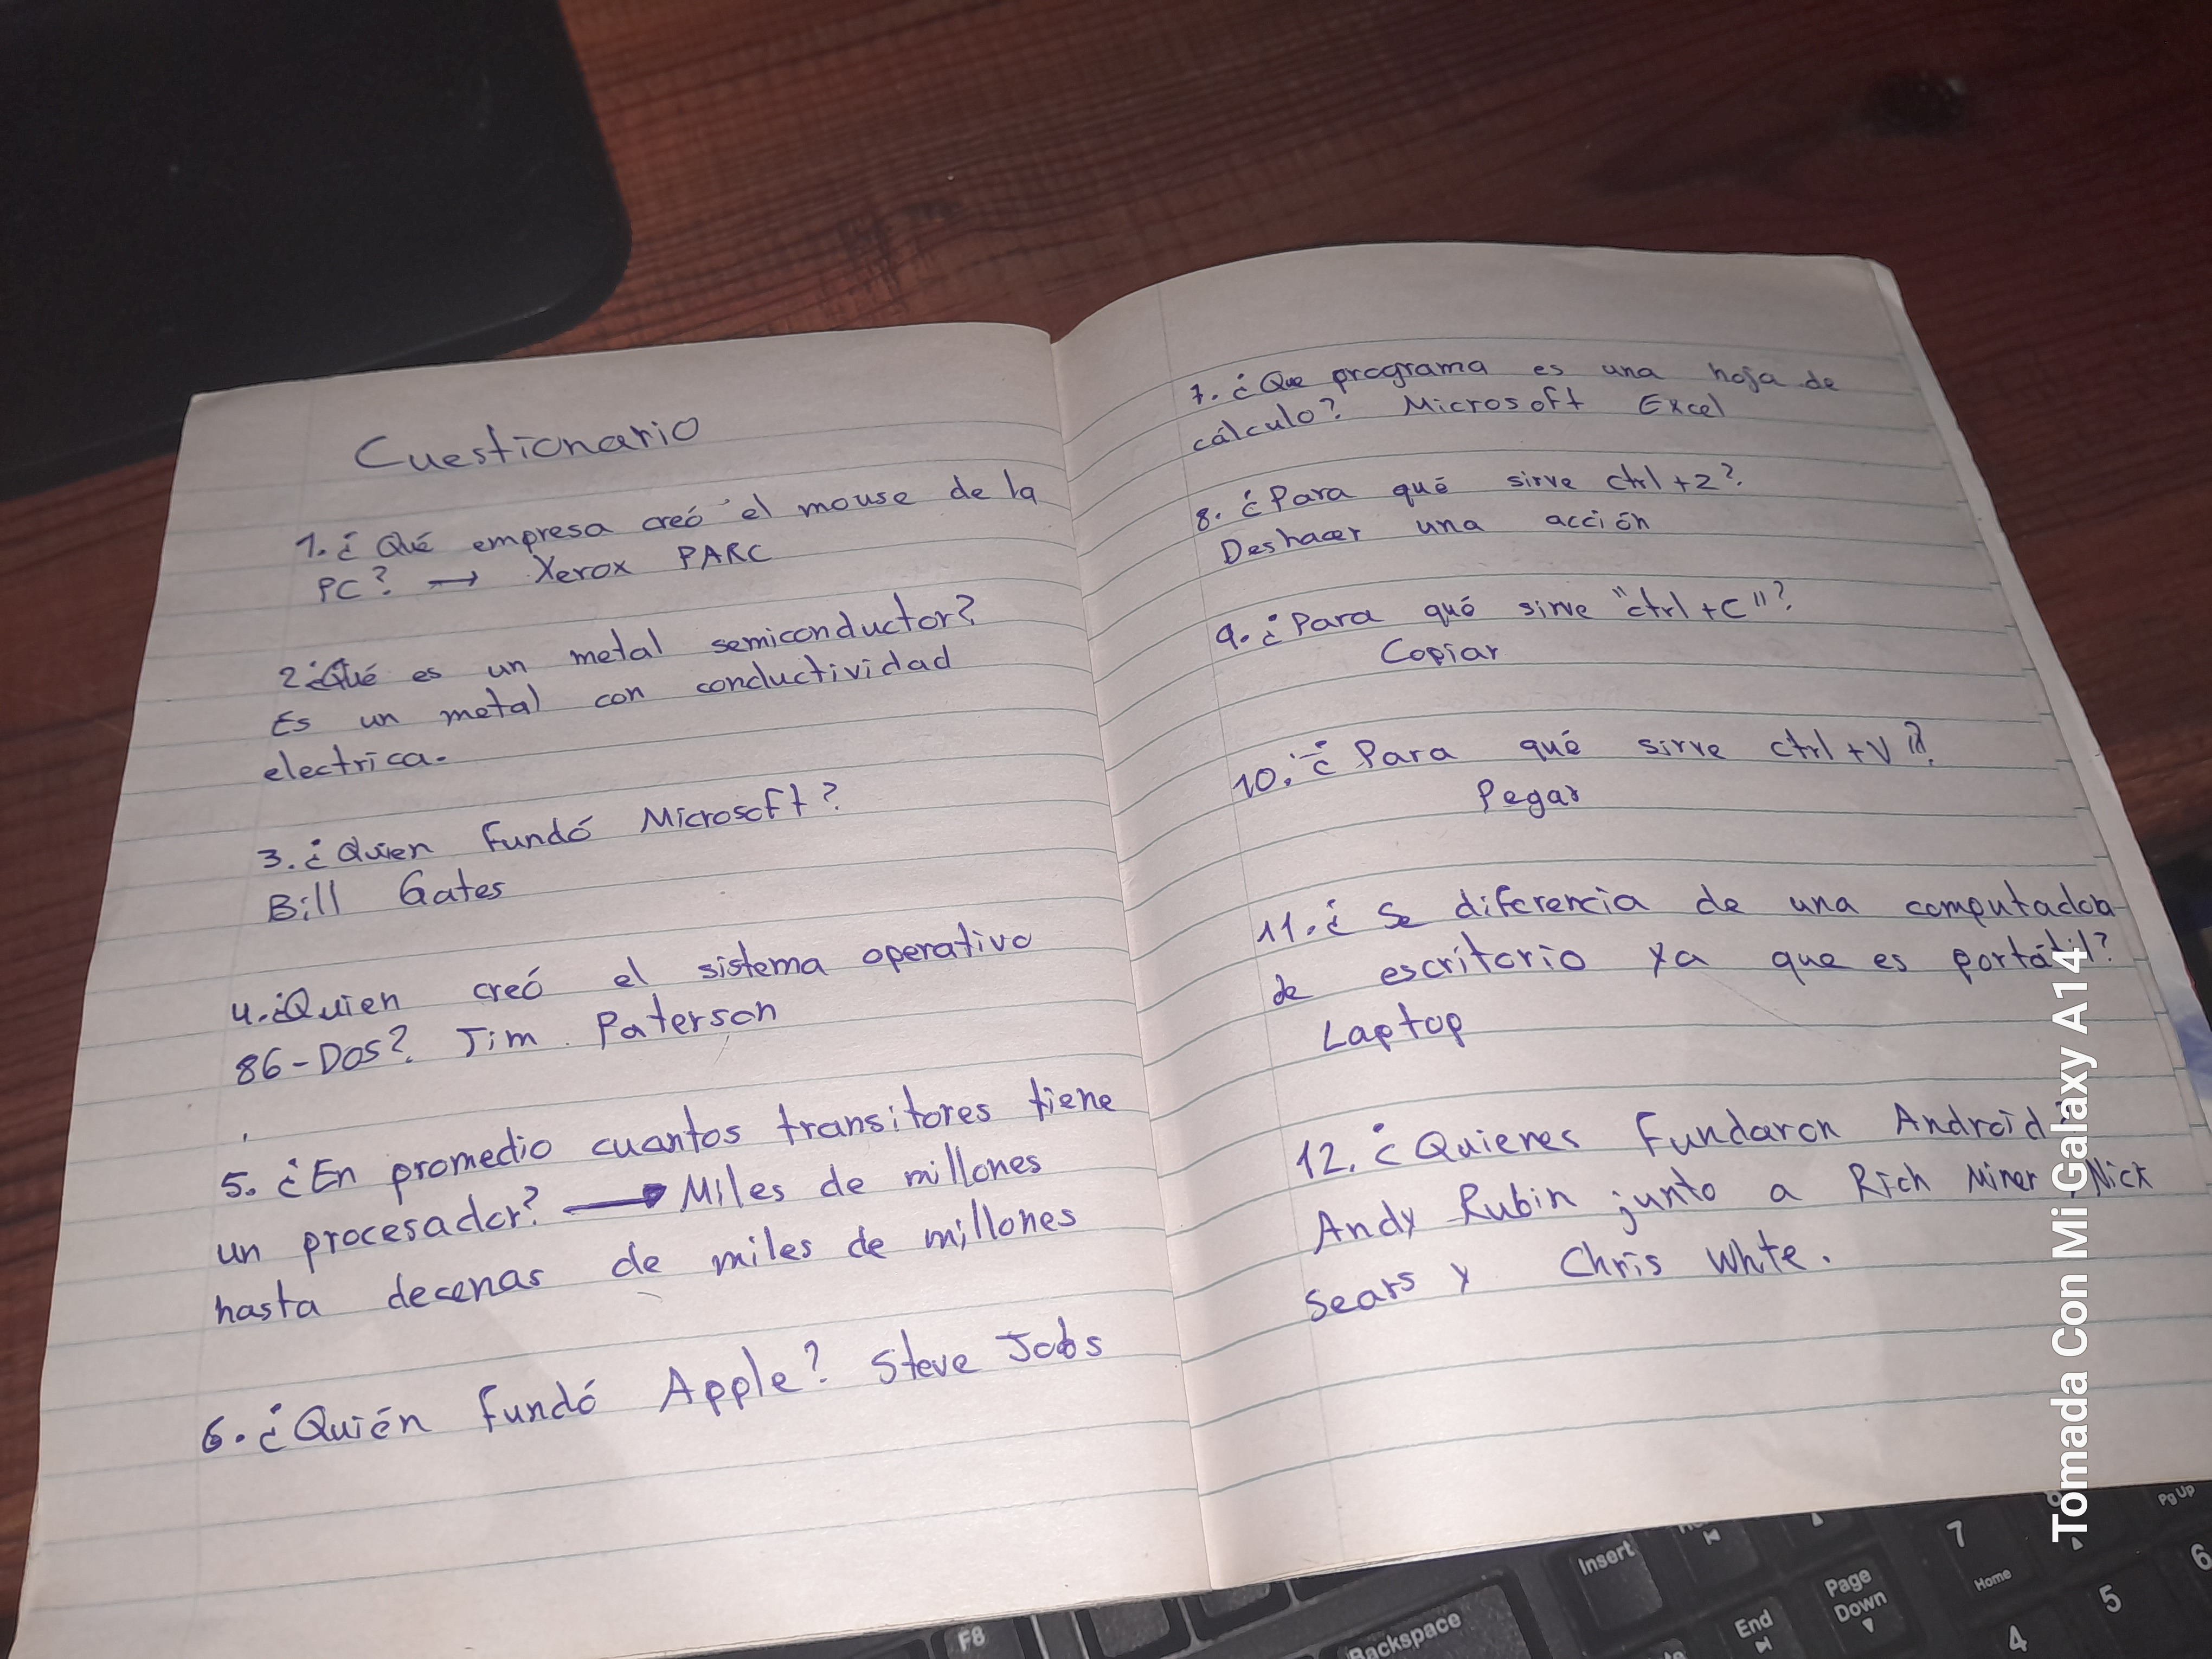 Cuestionario
1. ¿Qué empresa creó el mouse de la
PC? → Xerox PARC
2 ¿Qué es un metal semiconductor?
Es un metal con conductividad
electrica.
3. ¿Quien Fundó Microsoft?
Bill Gates
4. ¿Quien creó el sistema operativo
86-DOS? Jim Paterson
5. ¿En promedio cuantos transitores tiene
un procesador? → Miles de millones
hasta decenas de miles de millones
6. ¿Quién Fundó Apple? Steve Jobs
7. ¿Que programa es una hoja de
cálculo? Microsoft Excel
8. ¿Para qué sirve ctrl+z?
Deshacer una acción
9. ¿Para qué sirve "ctrl+C"?
Copiar
10. ¿Para qué sirve ctrl+V"?
Pegar
11. ¿Se diferencia de una
de escritorio ya que es portátil?
Laptop
12. ¿Quienes Fundaron Android
Andy Rubin junto a Rich Miner Nick
Sears y Chris White.
Tomada Con Mi Galaxy A14
F8
Backspace
Insert
End
Page
Down
7
Home
4
5
6
Pg Up